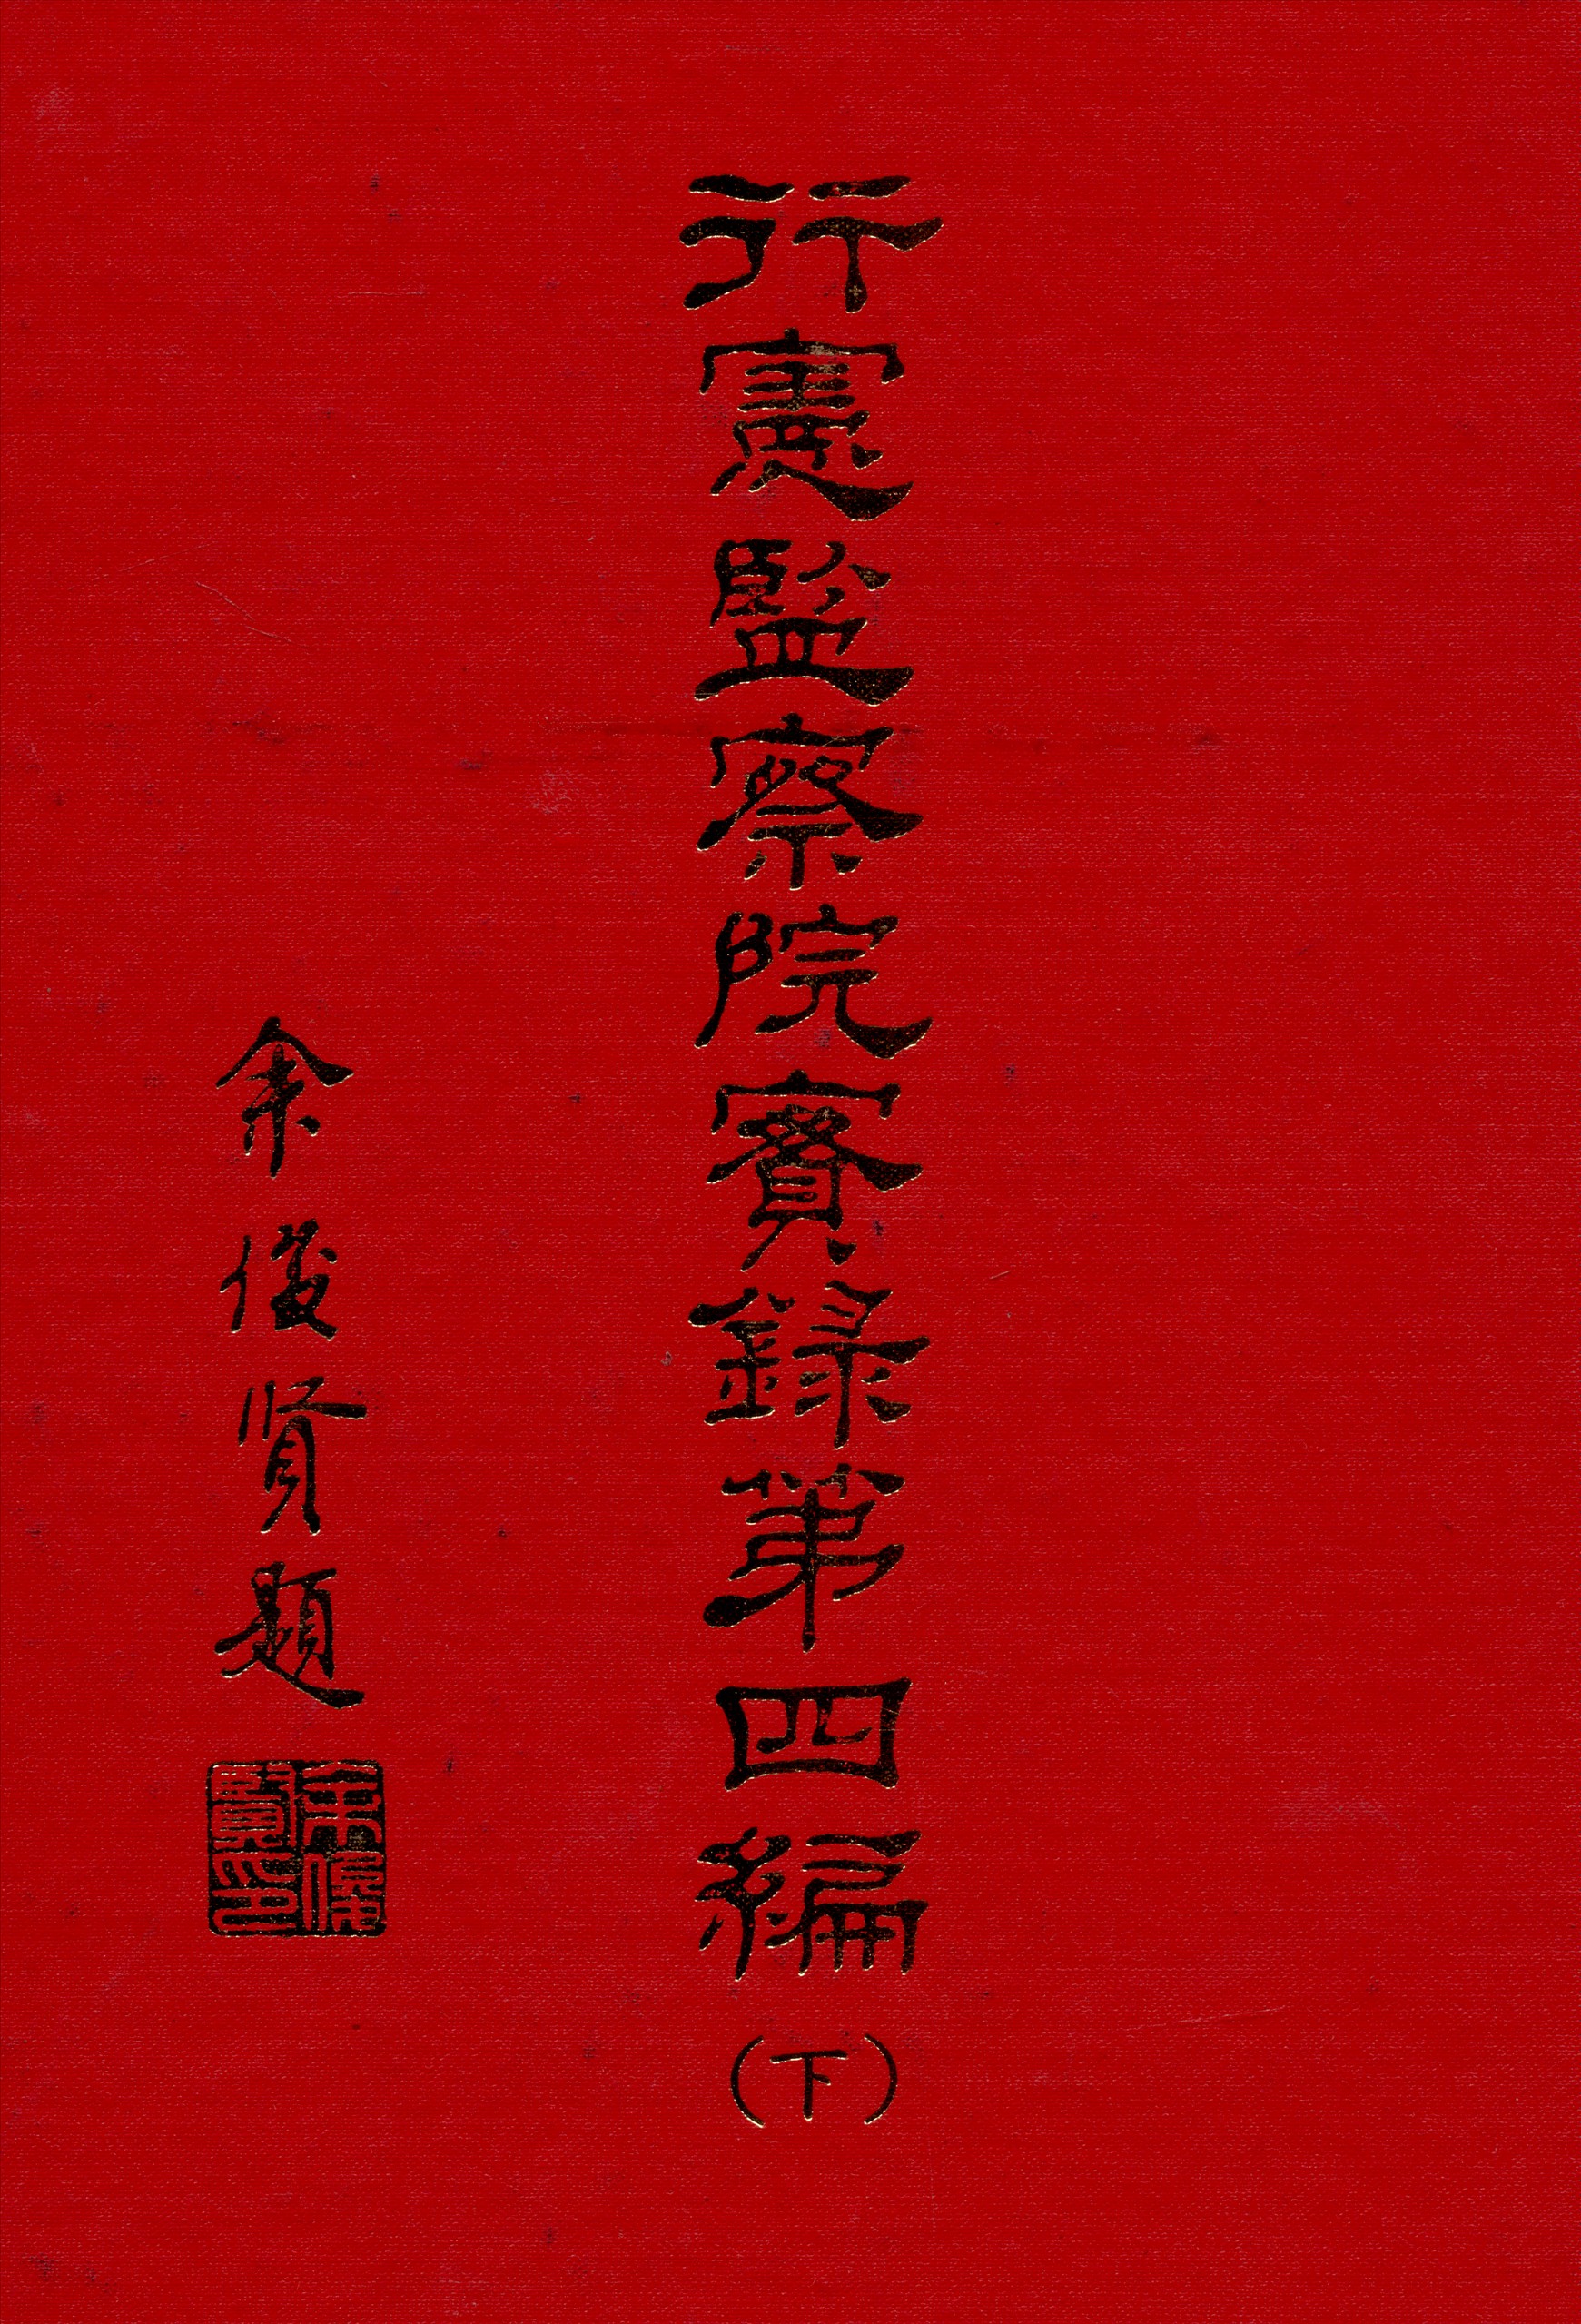 行憲監察院實錄第四編(下)
余俊賢題
余俊賢印